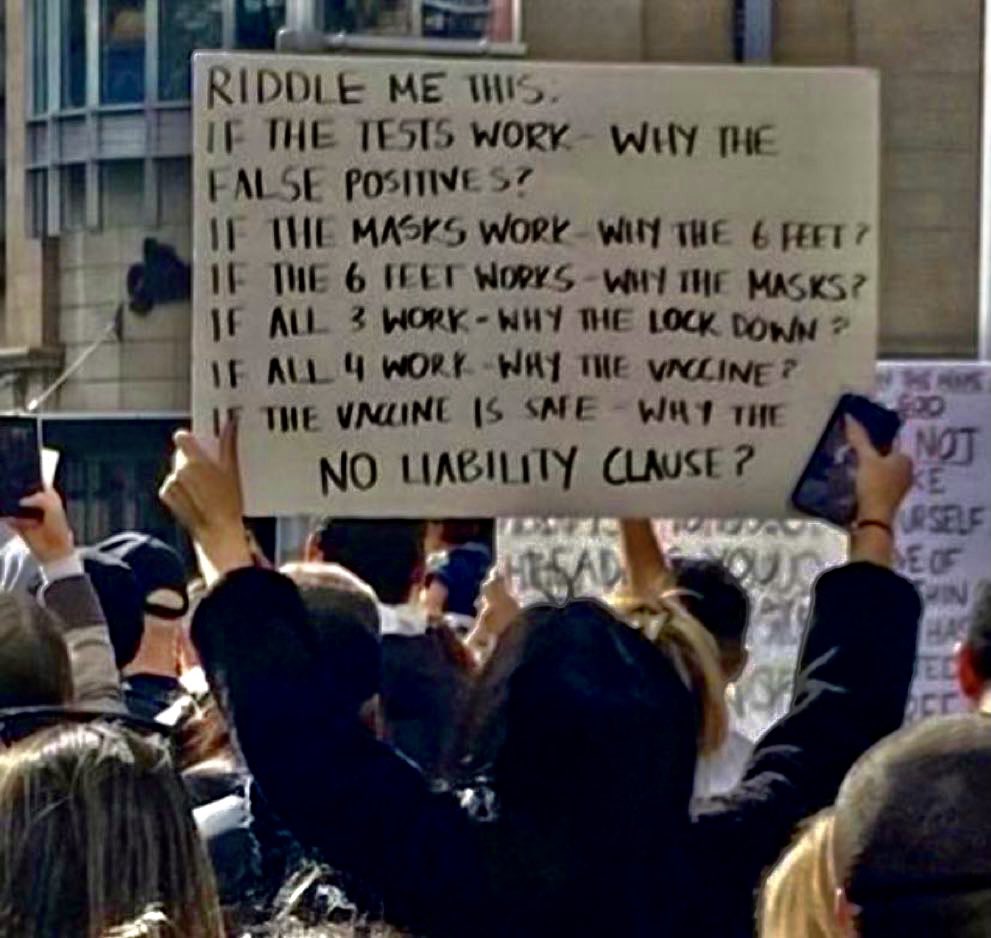 RIDDLE ME THIS:
IF THE TESTS WORK - WHY THE
FALSE POSITIVES?
IF THE MASKS WORK - WHY THE 6 FEET?
IF THE 6 FEET WORKS - WHY THE MASKS?
IF ALL 3 WORK - WHY THE LOCK DOWN?
IF ALL 4 WORK - WHY THE VACCINE?
IF THE VACCINE IS SAFE - WHY THE
NO LIABILITY CLAUSE?
HEAD
YOU
NOT